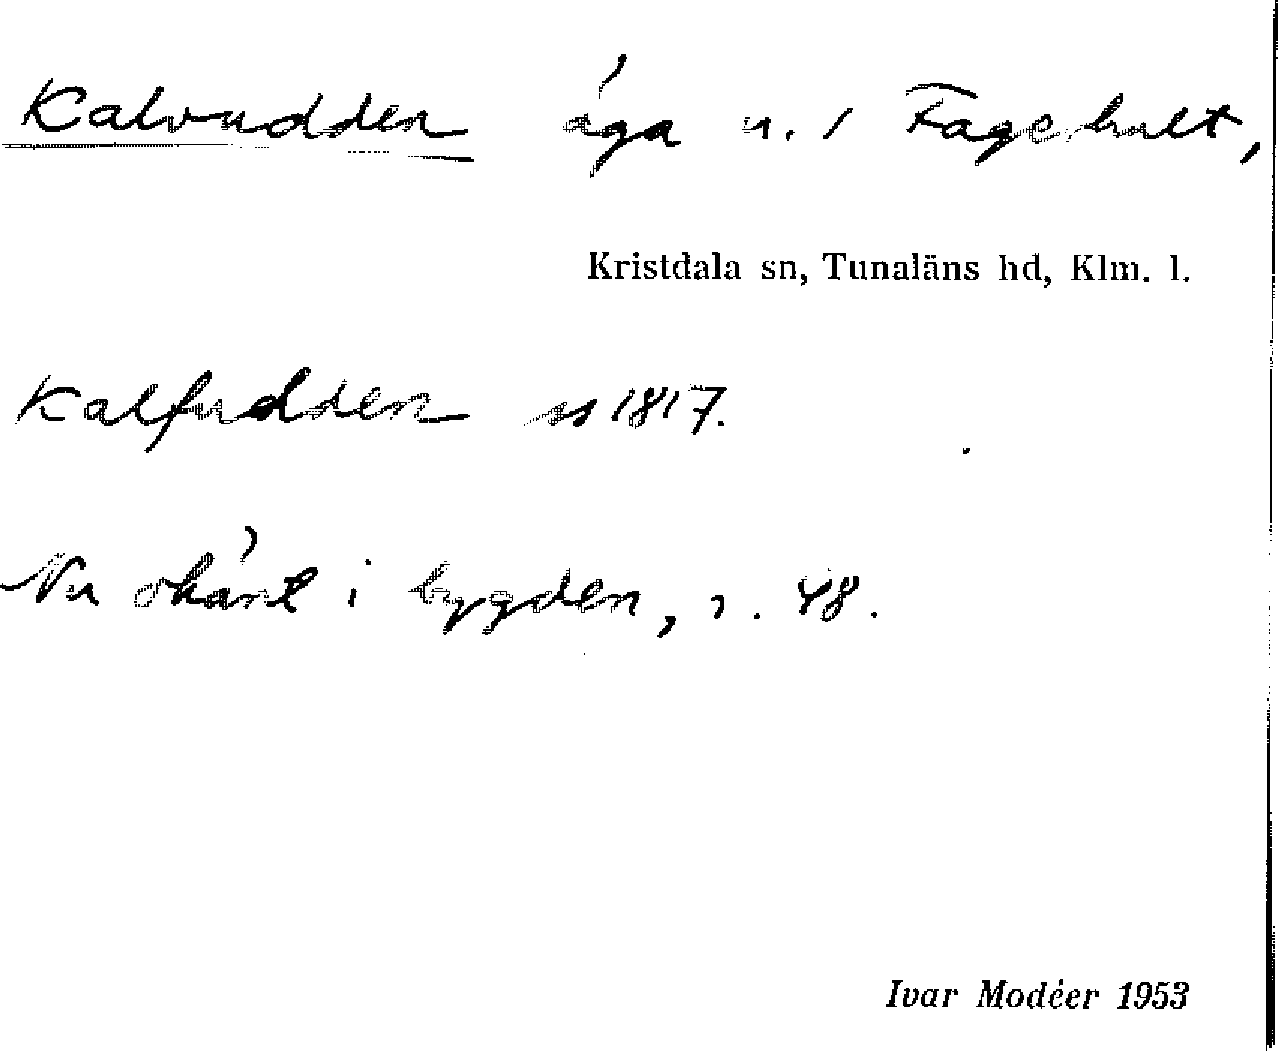 Kalvudden äga n. i Fagerhult,
Kristdala sn, Tunaläns hd, Klm. l.
Kalfudden ss 1817.
Nu okänt i bygden, r. 48.
Ivar Modéer 1953